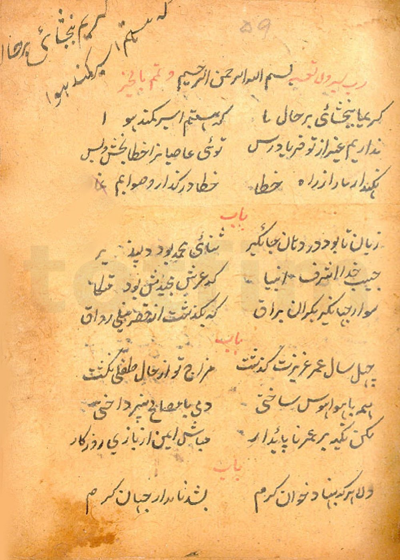 کریم ببخشای بر حال
که هستم اسیر کمند هوا
۵۹
رب یسر ولا تعسر بسم الله الرحمن الرحیم و تمم بالخیر
کریما ببخشای بر حال ما که هستم اسیر کمند هوا
نداریم غیر از تو فریادرس توئی عاصیانرا خطا بخش و بس
نگهدار ما را ز راه خطا خطا درگذار و صوابم نما
باب
زبان تا بود در دهان جایگیر ثنائی محمد بود دلپذیر
حبیب خدا اشرف انبیا که عرش مجیدش بود متکا
سوار جهانگیر یکران براق که بگذشت از قصر نیلی رواق
باب
چهل سال عمر عزیزت گذشت مزاج تو از حال طفلی نگشت
همه با هوا هوس ساختی دمی با مصالح نپرداختی
مکن تکیه بر عمر ناپایدار مباش ایمن از بازی روزگار
باب
دلا هر که بنهاد خوان کرم بشد نامدار جهان کرم